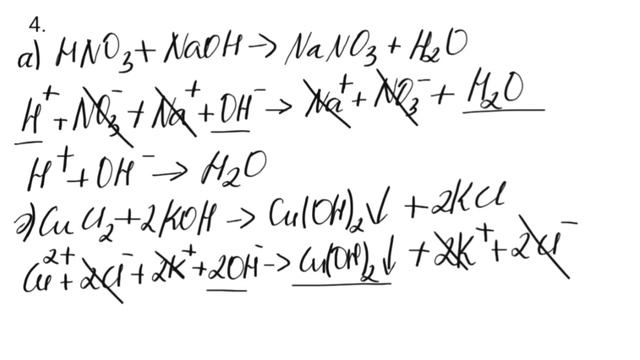 4.
а) HNO₃ + NaOH → NaNO₃ + H₂O
H⁺ + NO₃⁻ + Na⁺ + OH⁻ → Na⁺ + NO₃⁻ + H₂O
H⁺ + OH⁻ → H₂O
г) CuCl₂ + 2KOH → Cu(OH)₂↓ + 2KCl
Cu²⁺ + 2Cl⁻ + 2K⁺ + 2OH⁻ → Cu(OH)₂↓ + 2K⁺ + 2Cl⁻